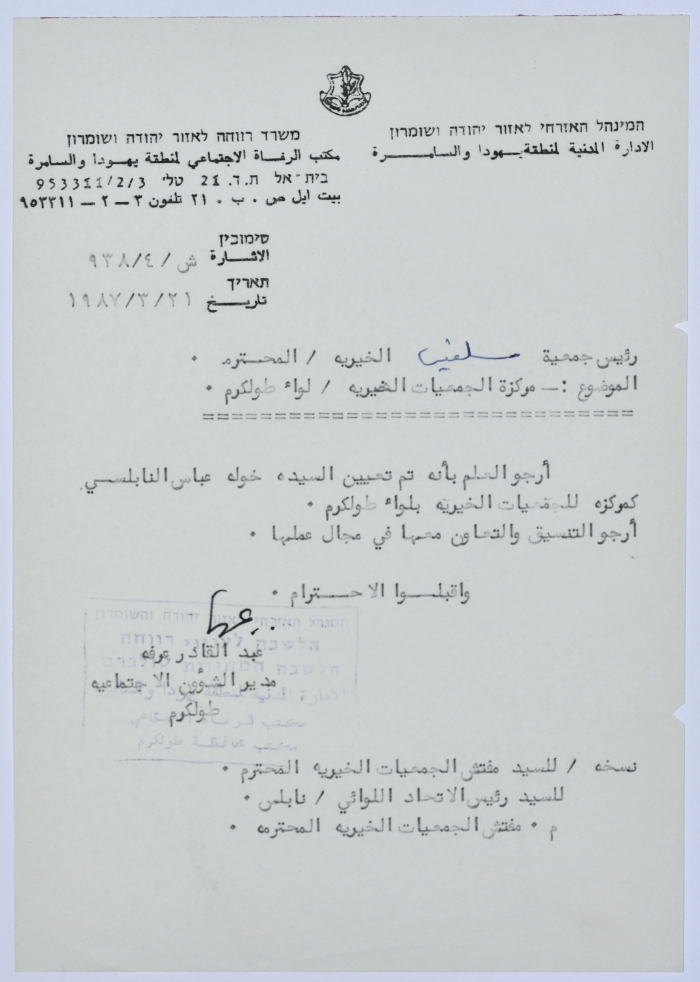 המינהל האזרחי לאזור יהודה ושומרון
الادارة المدنية لمنطقة يهودا والسامرة
משרד רווחה לאזור יהודה ושומרון
مكتب الرفاة الاجتماعي لمنطقة يهودا والسامرة
בית-אל ת.ד. 21 טל' 953311/2/3
بيت ايل ص . ب . ٢١ تلفون ٣ - ٢ - ٩٥٣٣١١
סימוכין
الاشارة ش/٤/٩٣٨
תאריך
تاريخ ١٩٨٧/٣/٢١
رئيس جمعية سلفيت الخيريه / المحترم ٠
الموضوع :- مركزة الجمعيات الخيريه / لواء طولكرم ٠
أرجو العلم بأنه تم تعيين السيده خوله عباس النابلسي
كمركزه للجمعيات الخيريه بلواء طولكرم ٠
أرجو التنسيق والتعاون معها في مجال عملها ٠
واقبلوا الاحترام ٠
عبد القادر عرفه
مدير الشؤون الاجتماعيه
طولكرم
המנהל האזרחי לאזור יהודה והשומרון
הלשכה לעניני רווחה
הלשכה המחוזית טולכרם
الادارة المدنية لمنطقة يهودا
مكتب
مكتب محافظة طولكرم
نسخه / للسيد مفتش الجمعيات الخيريه المحترم ٠
للسيد رئيس الاتحاد اللوائي / نابلس ٠
م ٠ مفتش الجمعيات الخيريه المحترمه ٠